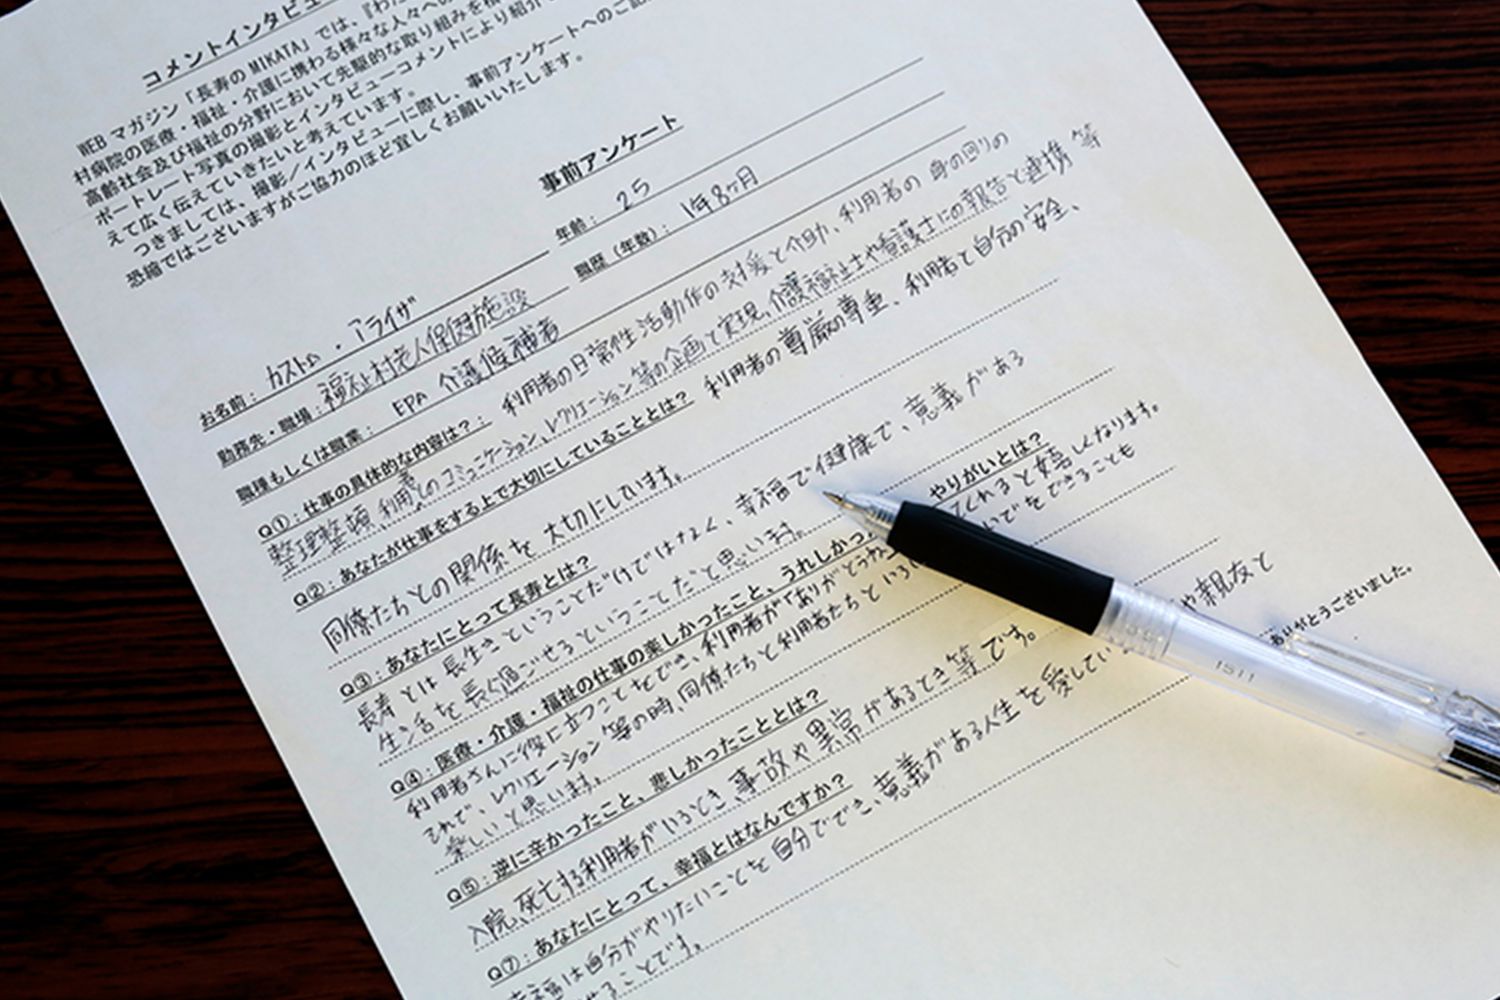 コメントインタビュー
WEB マガジン「長寿の MIKATA」では、『わた
村病院の医療・福祉・介護に携わる様々な人々への
高齢社会及び福祉の分野において先駆的な取り組みを
ポートレート写真の撮影とインタビューコメントにより紹介
えて広く伝えていきたいと考えています。
つきましては、撮影/インタビューに際し、事前アンケートへのご記
恐縮ではございますがご協力のほど宜しくお願いいたします。
事前アンケート
お名前: ・アライザ
年齢: 25
勤務先・職場: 福祉村老人保健施設
職歴(年数): 1年8ヶ月
職種もしくは職業: EPA 介護候補者
Q①:仕事の具体的な内容は?: 利用者の日常性活動作の支援と介助、利用者の身の回りの
整理整頓、利用者とのコミュニケーション、レクリエーション等の企画と実現、介護福祉士や看護士にの報告と連携等
Q②:あなたが仕事をする上で大切にしていることとは? 利用者の尊厳の尊重、利用者と自分の安全、
同僚たちとの関係を大切にしています。
Q③:あなたにとって長寿とは?
長寿とは長生きということだけではなく、幸福で健康で、意義がある
生活を長く過ごせるということだと思います。
Q④:医療・介護・福祉の仕事の楽しかったこと、うれしかっ やりがいとは?
利用者さんに役に立つことをでき、利用者が「ありがとうね てくれると嬉しくなります。
それで、レクリエーション等の時、同僚たちと利用者たちといろ でをできることも
楽しいと思います。
Q⑤:逆に辛かったこと、悲しかったこととは?
入院、死亡する利用者がいるとき、事故や異常があるとき等です。
Q⑦:あなたにとって、幸福とはなんですか?
幸福は自分がやりたいことを自分ででき、意義がある人生を愛してい や親友と
せることです。
ありがとうございました。
1511